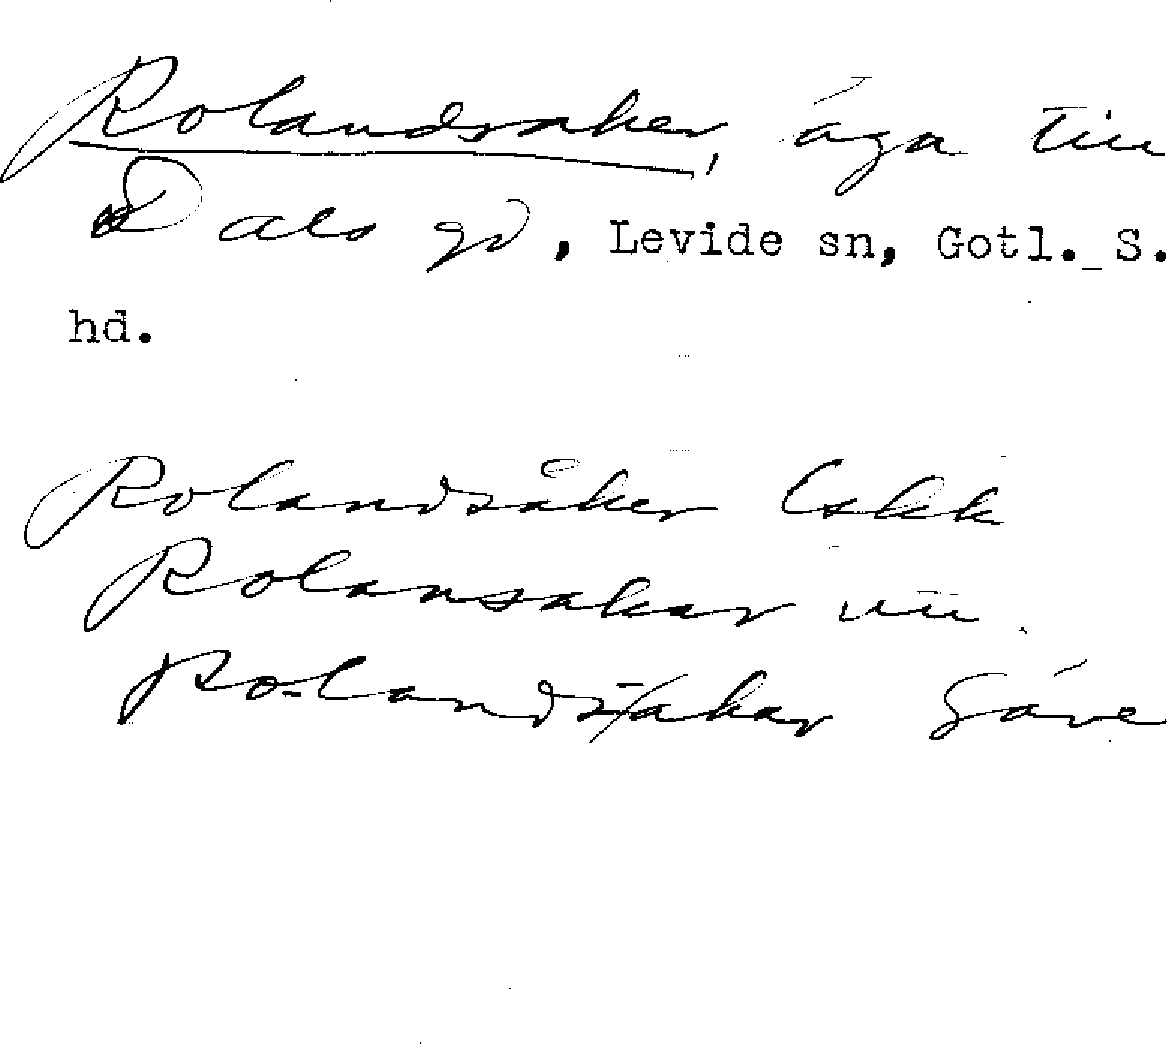 Rolandsaker, äga till
Dals gd, Levide sn, Gotl. S.
hd.
Rolandsåker Lskk
Rolansakar
Ro-lands/akar Säve